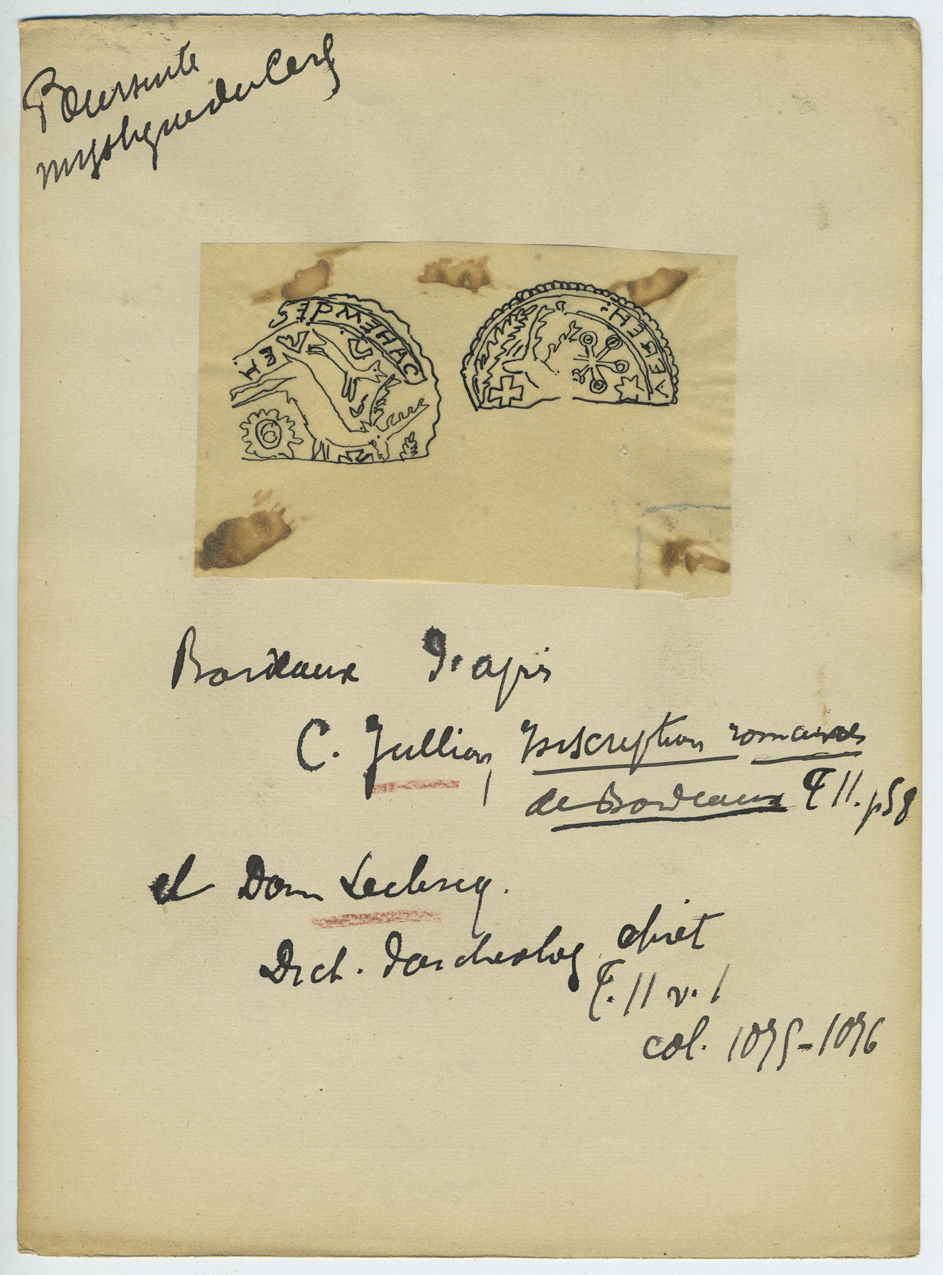 Poursuite
mystique du Cerf
Bordeaux d'après
C. Jullian, Inscription romaines
de Bordeaux T II. p 58
et Dom Leclercq.
Dict. d'archeolog chret
T. II v. 1
col. 1075-1076